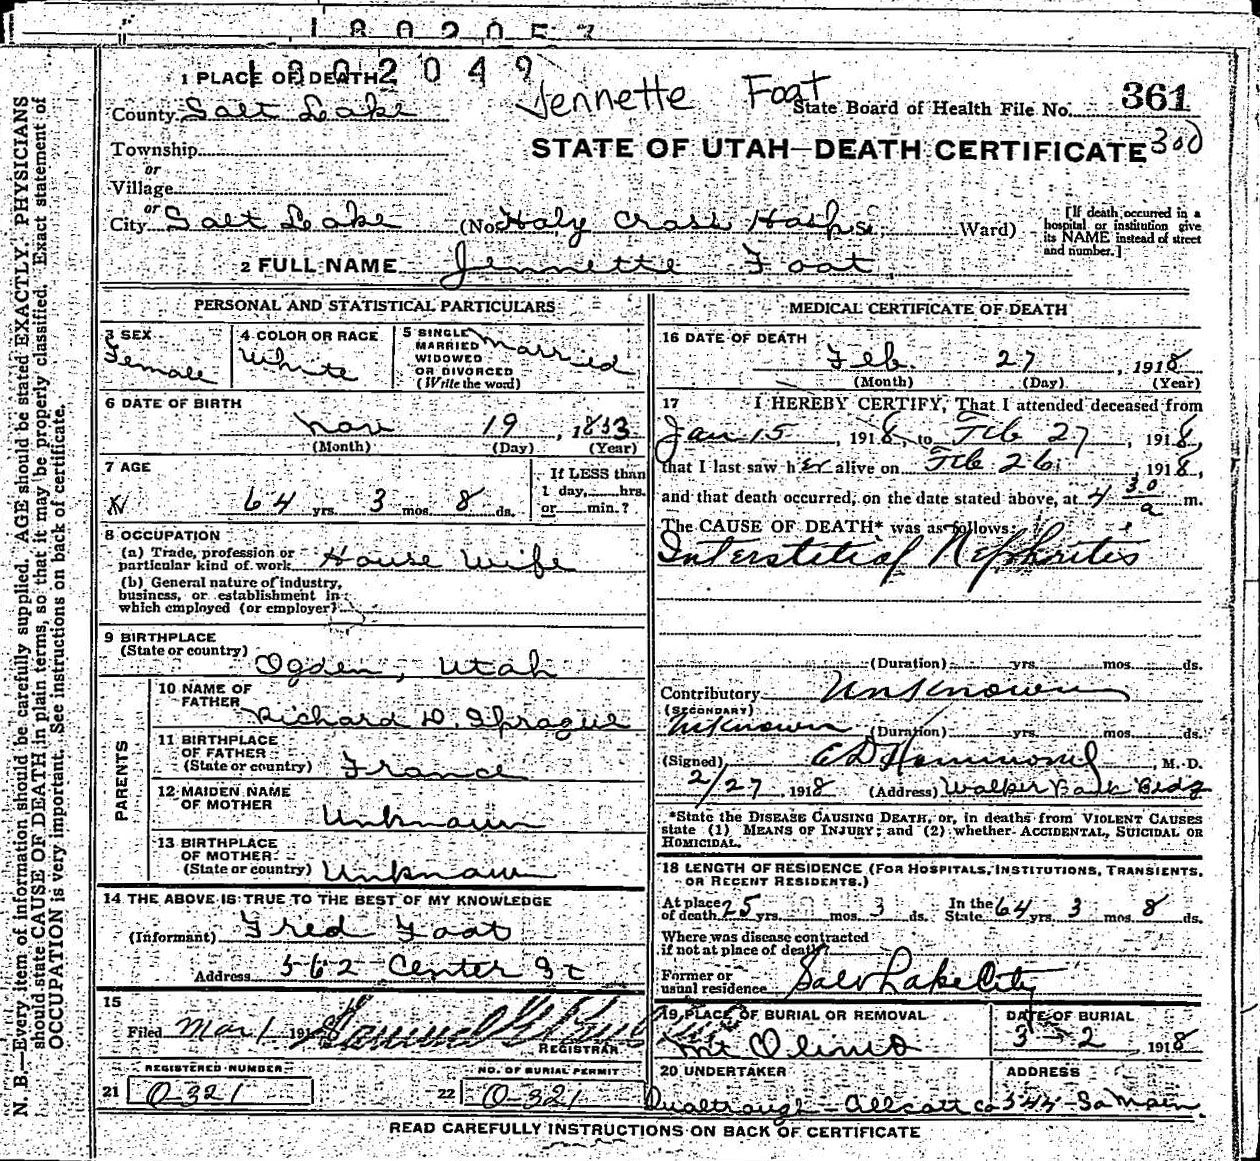 1802057
1802049
Jennette Foat
1 PLACE OF DEATH
State Board of Health File No. 361
County Salt Lake
300
STATE OF UTAH—DEATH CERTIFICATE
Township
or
Village
or
City Salt Lake (No. Holy Cross Hosp. St. Ward)
[If death occurred in a hospital or institution give its NAME instead of street and number.]
2 FULL NAME Jennette Foat
PERSONAL AND STATISTICAL PARTICULARS
3 SEX
Female
4 COLOR OR RACE
White
5 SINGLE
MARRIED
WIDOWED
OR DIVORCED
(Write the word)
Married
6 DATE OF BIRTH
Nov 19, 1853
(Month) (Day) (Year)
7 AGE
64 yrs. 3 mos. 8 ds.
If LESS than
1 day, hrs.
or min.?
8 OCCUPATION
(a) Trade, profession or
particular kind of work House Wife
(b) General nature of industry,
business, or establishment in
which employed (or employer)
9 BIRTHPLACE
(State or country)
Ogden, Utah
PARENTS
10 NAME OF
FATHER
Richard D. Sprague
11 BIRTHPLACE
OF FATHER
(State or country) France
12 MAIDEN NAME
OF MOTHER
Unknown
13 BIRTHPLACE
OF MOTHER
(State or country) Unknown
14 THE ABOVE IS TRUE TO THE BEST OF MY KNOWLEDGE
(Informant) Fred Foat
Address 562 Center St
15
Filed Mar 1 191
REGISTRAR
REGISTERED NUMBER
21 O-321
NO. OF BURIAL PERMIT
22 O-321
MEDICAL CERTIFICATE OF DEATH
16 DATE OF DEATH
Feb. 27, 1918
(Month) (Day) (Year)
17 I HEREBY CERTIFY, That I attended deceased from
Jan 15, 1918, to Feb 27, 1918,
that I last saw her alive on Feb 26, 1918,
and that death occurred, on the date stated above, at 4 30 a m.
The CAUSE OF DEATH* was as follows:
Interstitial Nephritis
(Duration) yrs. mos. ds.
Contributory Unknown
(SECONDARY)
Unknown (Duration) yrs. mos. ds.
(Signed) E D Hammond, M. D.
2/27, 1918 (Address) Walker Bank Bldg
*State the DISEASE CAUSING DEATH, or, in deaths from VIOLENT CAUSES
state (1) MEANS OF INJURY; and (2) whether ACCIDENTAL, SUICIDAL OR
HOMICIDAL.
18 LENGTH OF RESIDENCE (FOR HOSPITALS, INSTITUTIONS, TRANSIENTS,
OR RECENT RESIDENTS.)
At place
of death 25 yrs. mos. 3 ds. In the
State 64 yrs. 3 mos. 8 ds.
Where was disease contracted
if not at place of death?
Former or
usual residence Salt Lake City
19 PLACE OF BURIAL OR REMOVAL
Mt Olivis
DATE OF BURIAL
3 - 2, 1918
20 UNDERTAKER
ADDRESS
344 So Main
READ CAREFULLY INSTRUCTIONS ON BACK OF CERTIFICATE
N. B.—Every item of information should be carefully supplied. AGE should be stated EXACTLY. PHYSICIANS
should state CAUSE OF DEATH in plain terms, so that it may be properly classified. Exact statement of
OCCUPATION is very important. See instructions on back of certificate.